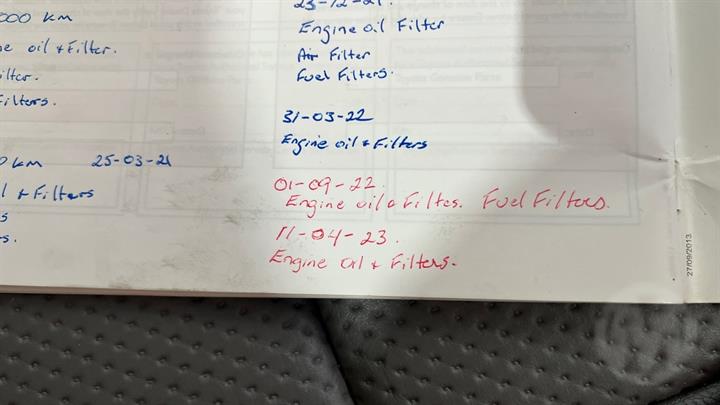 000 KM
oil & Filter.
Filters.
KM 25-03-21
& Filters
23-12-21.
Engine oil Filter
Air Filter
Fuel Filters.
31-03-22
Engine oil & Filters
01-09-22.
Engine oil & Filtes. Fuel Filters.
11-04-23.
Engine Oil & Filters.
27/09/2013